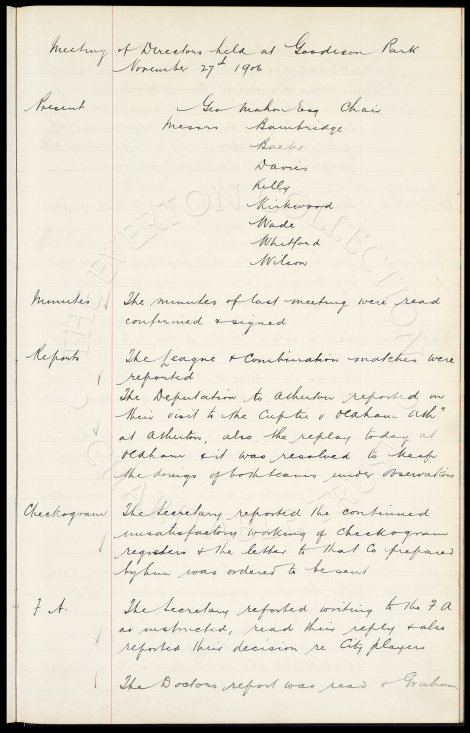 Meeting of Directors held at Goodison Park
November 27th 1906
Present Geo Mahon Esq Chair
Messrs Bainbridge
Baxter
Davies
Kelly
Kirkwood
Wade
Whitford
Wilson
Minutes The minutes of last meeting were read
confirmed & signed
Reports The League & Combination matches were
reported
The Deputation to Atherton reported on
their visit to the Cuptie v Oldham Ath
at Atherton, also the replay today at
Oldham & it was resolved to keep
the doings of both teams under observation
Checkogram The Secretary reported the continued
unsatisfactory working of Checkogram
registers & the letter to that Co prepared
by him was ordered to be sent
F.A. The Secretary reported writing to the F A
as instructed, read their reply & also
reported their decision re City players
The Doctors report was read & Graham
THE EVERTON COLLECTION